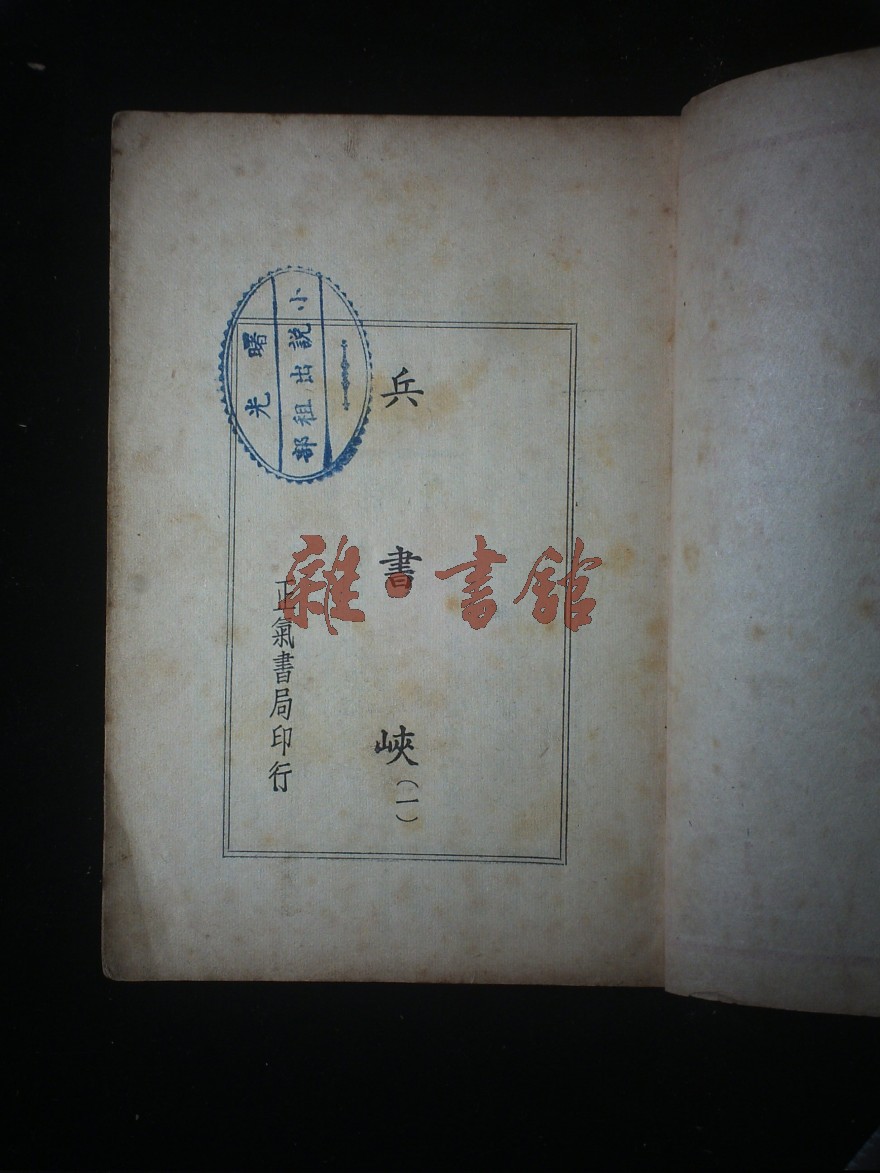 兵書峽(一)
正氣書局印行
小說出租部
曙光
雜書館